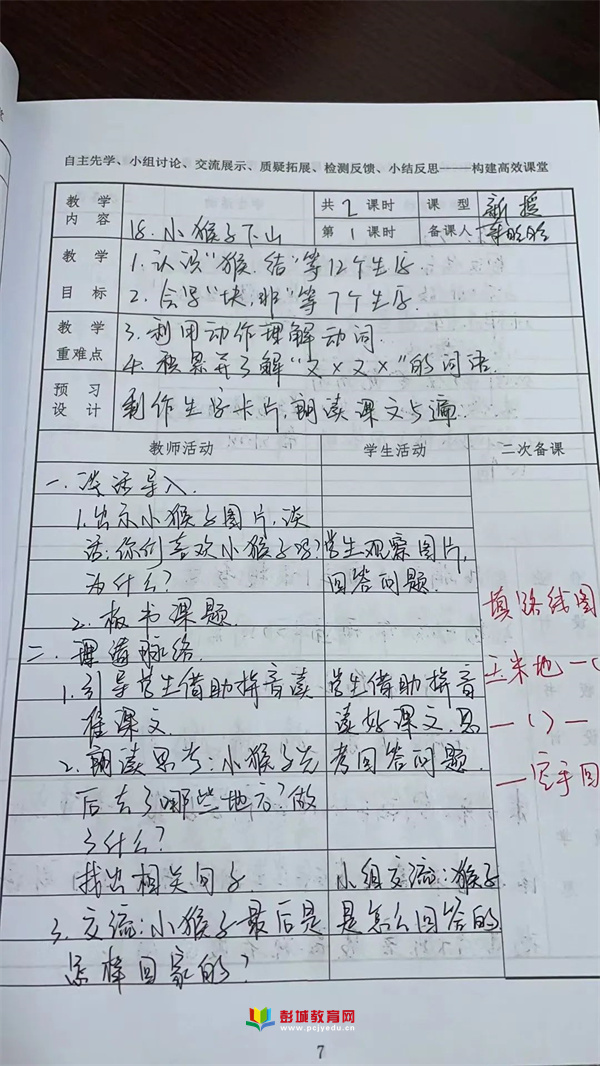 自主先学、小组讨论、交流展示、质疑拓展、检测反馈、小结反思——构建高效课堂
教学内容 18.小猴子下山 共2课时 课型 新授
第1课时 备课人
教学目标 1.认识"猴、结"等12个生字
2.会写"块、非"等7个生字.
教学重难点 3.利用动作理解动词.
4.积累并了解"又×又×"的词语.
预习设计 制作生字卡片,朗读课文5遍
教师活动 学生活动 二次备课
一.谈话导入.
1.出示小猴子图片,谈
话:你们喜欢小猴子吗? 学生观察图片,
为什么? 回答问题. 填路线图
2.板书课题.
二.理清脉络. 玉米地—(
1.引导学生借助拼音读 学生借助拼音
准课文. 读好课文.思 —()—
2.朗读思考:小猴子先 考回答问题. —空手回
后去了哪些地方?做
了什么?
找出相关句子 小组交流:猴子
3.交流:小猴子最后是 是怎么回答的
怎样回家的?
彭城教育网
www.pcjyedu.cn
7